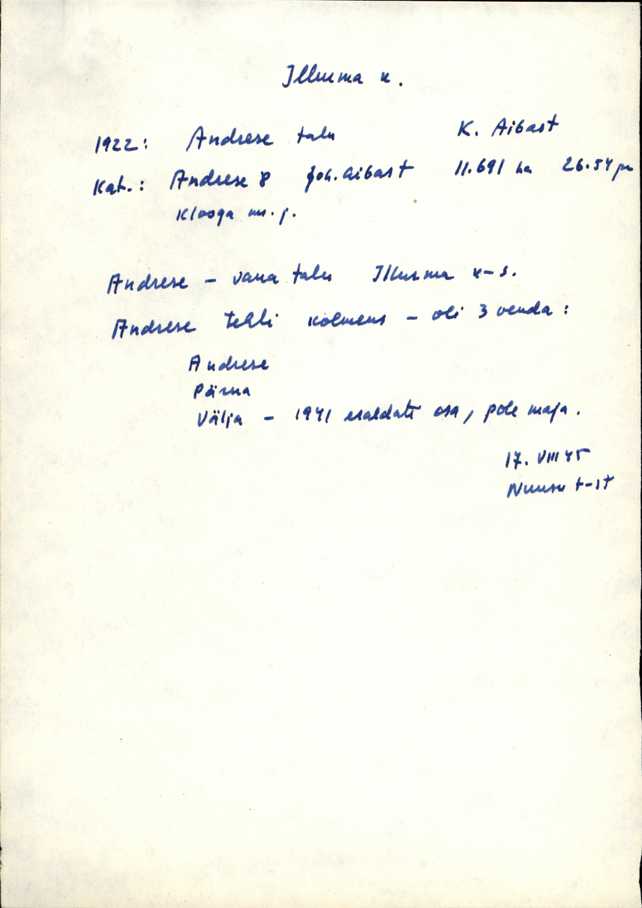 Illurma k.
1922: Andrese talu K. Aibast
Kat.: Andrese 8 Joh. Aibast 11.691 ha 26.54
Klooga m. j.
Andrese – vana talu Illurma k-s.
Andrese tehti kolmeks – oli 3 venda:
Andrese
Pärna
Välja – 1941 eraldati osa, pole maja.
17. VIII 45
t-st